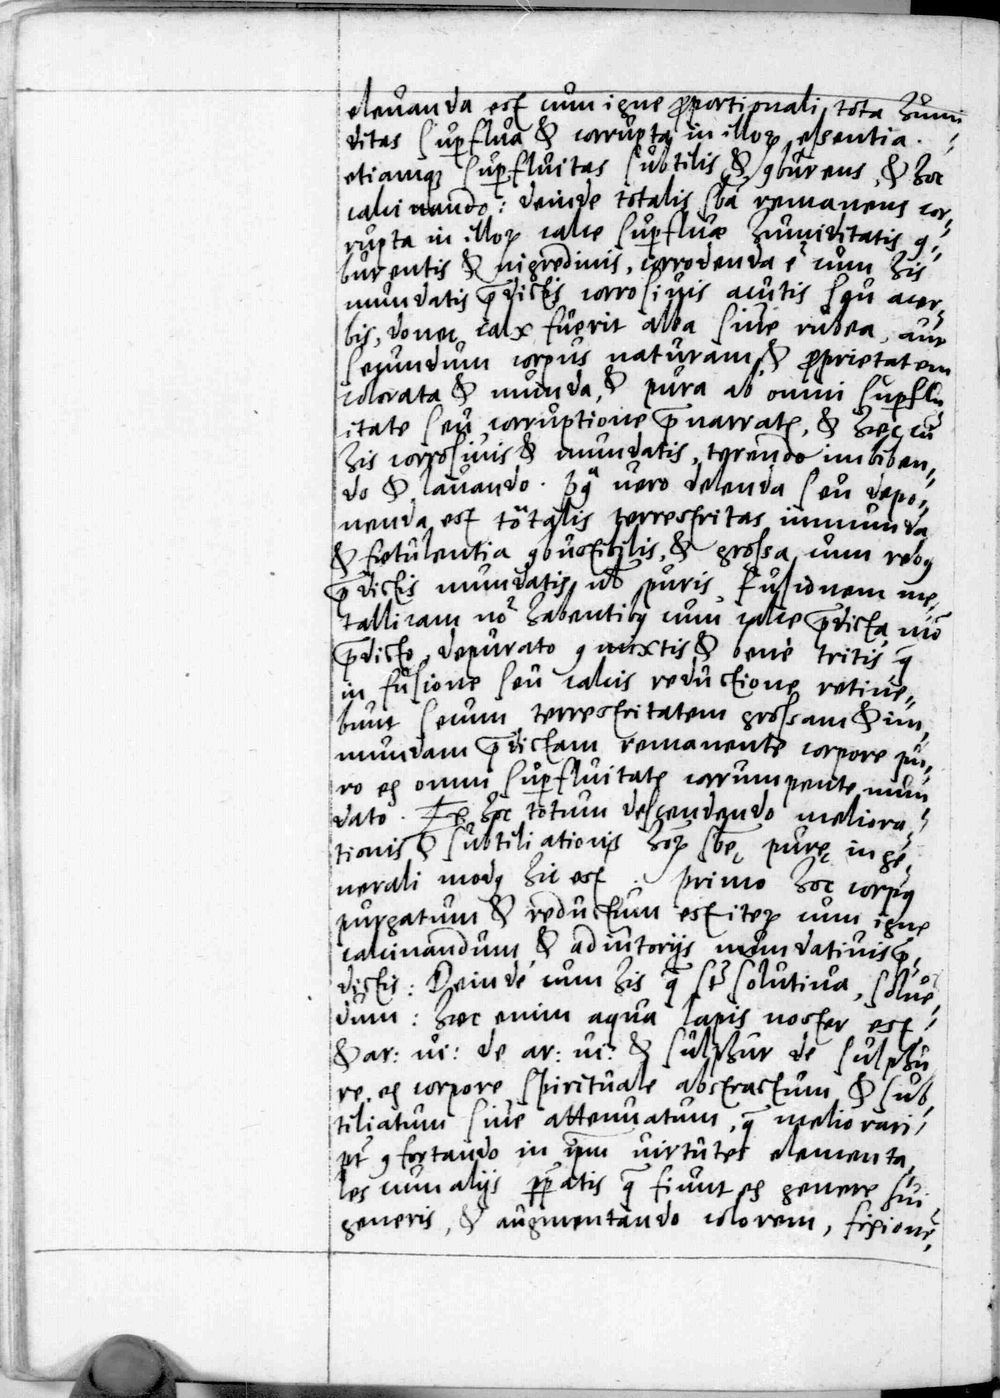 eleuanda est cum igne ꝓportionali, tota humi
ditas sup̱flua & corrupta in illoꝝ essentia.
etiamqꝫ sup̱fluitas subtilis & ꝯburens, & hoc
calcinando: deinde totalis sb̄a remanens cor,,
rupta in illoꝝ calce sup̱fluæ humiditatis ꝯ,,
burentis & nigredinis, corrodenda ē cum his
mundatis p̄dictis corrosiuis acutis seu acer,,
bis, donec calx fuerit alba siue rubea, aut
secundum corpus naturam, & ꝓprietatem
colorata & munda, & pura ab omni sup̱flu
itate seu corruptione p̄narrata, & hęc cū
his corrosiuis & mundatis, terendo imbiben,,
do & lauando. vero delenda seu depo,,
nenda est totalis terrestritas immunda
& fœtulentia ꝯbustibilis, & grossa, cum rebꝯ
p̄dictis mundatis uł puris, fusionem me,,
tallicam nō habentibꝯ cum calce p̄dicta, mō
p̄dicto, depurato ꝯmixtis & bene tritis q̄
in fusione seu calcis reductione retine,,
bunt secum terrestritatem grossam & im,,
mundam p̄dictam remanente corpore pu,,
ro ex omni sup̱fluitate corrumpente mun
dato. hoc totum descendendo meliora,,
tionis & subtiliationis hoꝝ sb̄ę purę in ge,,
nerali modꝯ hic est. primo hoc corpꝯ
purgatum & reductum est iteꝝ cum igne
calcinandum & adiutorijs mundatiuis p̄,,
dictis: Deinde cum his q̄ st̄ solutiua, solue,,
dum: hæc enim aqua lapis noster est,,
& ar: ui: de ar: ui: & sulphur de sulphu
re, ex corpore spirituale abstractum & sub,,
tiliatum siue attenuatum, q̄ meliorari,,
pt̄ ꝯfortando in ip̄m uirtutes elementa,,
les cum alijs p̄p̄atis q̄ fiunt ex genere sui
generis, & augmentando colorem, fixionē,,